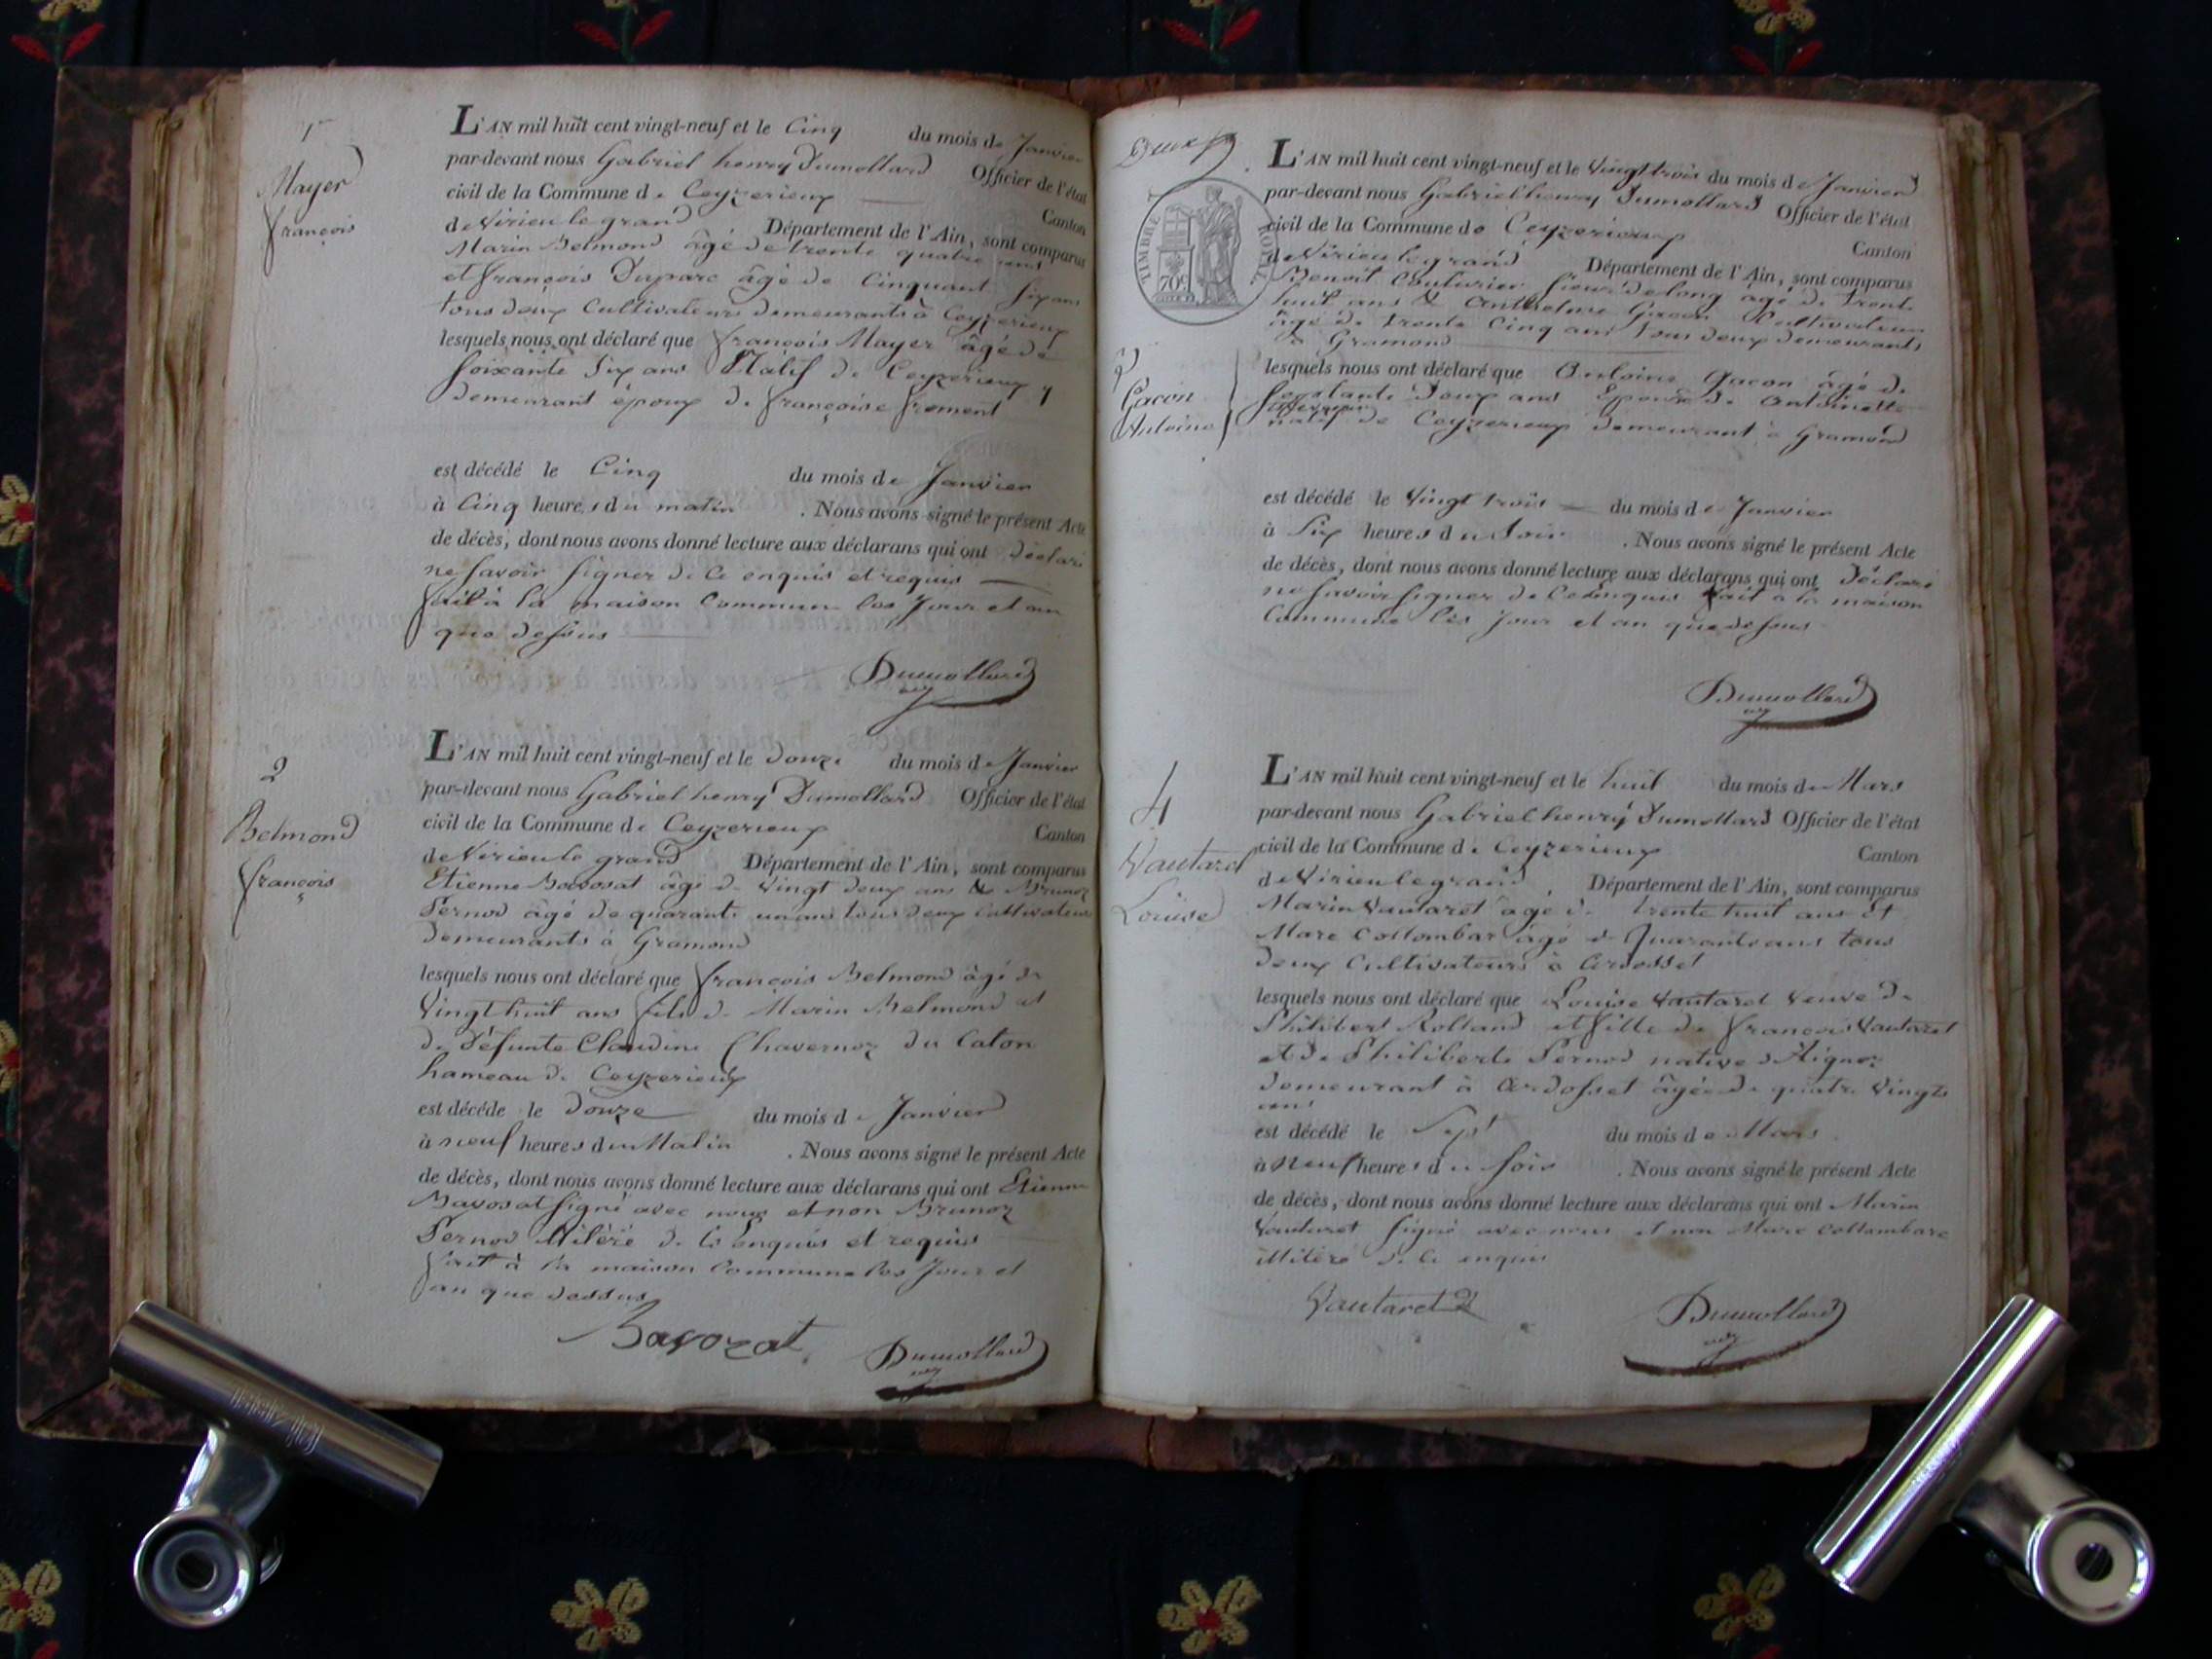 1er
Mayer
françois
L'AN mil huit cent vingt-neuf et le Cinq du mois de Janvier
par-devant nous Gabriel henry Dumollard Officier de l'état
civil de la Commune de Ceyzerieux Canton
de Virieu le grand Département de l'Ain, sont comparus
Marin Belmond âgé de trente quatre ans
et françois Duparc âgé de Cinquant six ans
tous deux Cultivateurs demeurants à Ceyzerieux
lesquels nous ont déclaré que françois Mayer âgé de
soixante six ans Natif de Ceyzerieux y
demeurant époux de françoise froment
est décédé le Cinq du mois de Janvier
à Cinq heures du matin . Nous avons signé le présent Acte
de décès, dont nous avons donné lecture aux déclarans qui ont déclaré
ne savoir signer de ce enquis et requis
fait à la maison Commune les Jour et an
que dessus
Dumollard
2
Belmond
françois
L'AN mil huit cent vingt-neuf et le douze du mois de Janvier
par-devant nous Gabriel henry Dumollard Officier de l'état
civil de la Commune de Ceyzerieux Canton
de Virieu le grand Département de l'Ain, sont comparus
Etienne Bavosat âgé de Vingt deux ans & Brunoz
Pernod âgé de quarante un ans tous deux Cultivateurs
demeurants à Gramond
lesquels nous ont déclaré que françois Belmond âgé de
Vingt huit ans fils de Marin Belmond et
de Défunte Claudine Chavernoz du Caton
hameau de Ceyzerieux
est décédé le douze du mois de Janvier
à neuf heures du Matin . Nous avons signé le présent Acte
de décès, dont nous avons donné lecture aux déclarans qui ont Etienne
Bavosat signé avec nous et non Brunoz
Pernod illiteré de ce enquis et requis
fait à la maison Commune les Jour et
an que dessus
Bavozat Dumollard
Deux
TIMBRE ROYAL
70c
3
Gacon
Antoine
L'AN mil huit cent vingt-neuf et le Vingt trois du mois de Janvier
par-devant nous Gabriel henry Dumollard Officier de l'état
civil de la Commune de Ceyzerieux Canton
de Virieu le grand Département de l'Ain, sont comparus
Benoit Couturier sieur delong âgé de trent
huit ans & Anthelme Gacon Cultivateur
âgé de trente Cinq ans tous deux demeurants
à Gramond
lesquels nous ont déclaré que Antoine Gacon âgé de
septante Deux ans Epoux de Antoinette
natif de Ceyzerieux demeurant à Gramond
est décédé le Vingt trois du mois de Janvier
à Six heures du Soir . Nous avons signé le présent Acte
de décès, dont nous avons donné lecture aux déclarans qui ont déclaré
ne savoir signer de ce enquis fait à la maison
Commune les Jour et an que dessus
Dumollard
4
Vautaret
Louise
L'AN mil huit cent vingt-neuf et le huit du mois de Mars
par-devant nous Gabriel henry Dumollard Officier de l'état
civil de la Commune de Ceyzerieux Canton
de Virieu le grand , Département de l'Ain, sont comparus
Marin Vautaret âgé de trente huit ans Et
Marc Collombar âgé de Quarante ans tous
deux Cultivateurs à Ardosset
lesquels nous ont déclaré que Louise Vautaret Veuve de
Philibert Rolland et fille de françois Vautaret
et de Philiberte Pernod native d'Aignoz
demeurant à Ardosset âgée de quatre Vingts
ans
est décédé le Sept du mois de Mars
à Neuf heures du soir . Nous avons signé le présent Acte
de décès, dont nous avons donné lecture aux déclarans qui ont Marin
Vautaret signé avec nous et non Marc Collombare
illitéré de ce enquis
Vautaret Dumollard